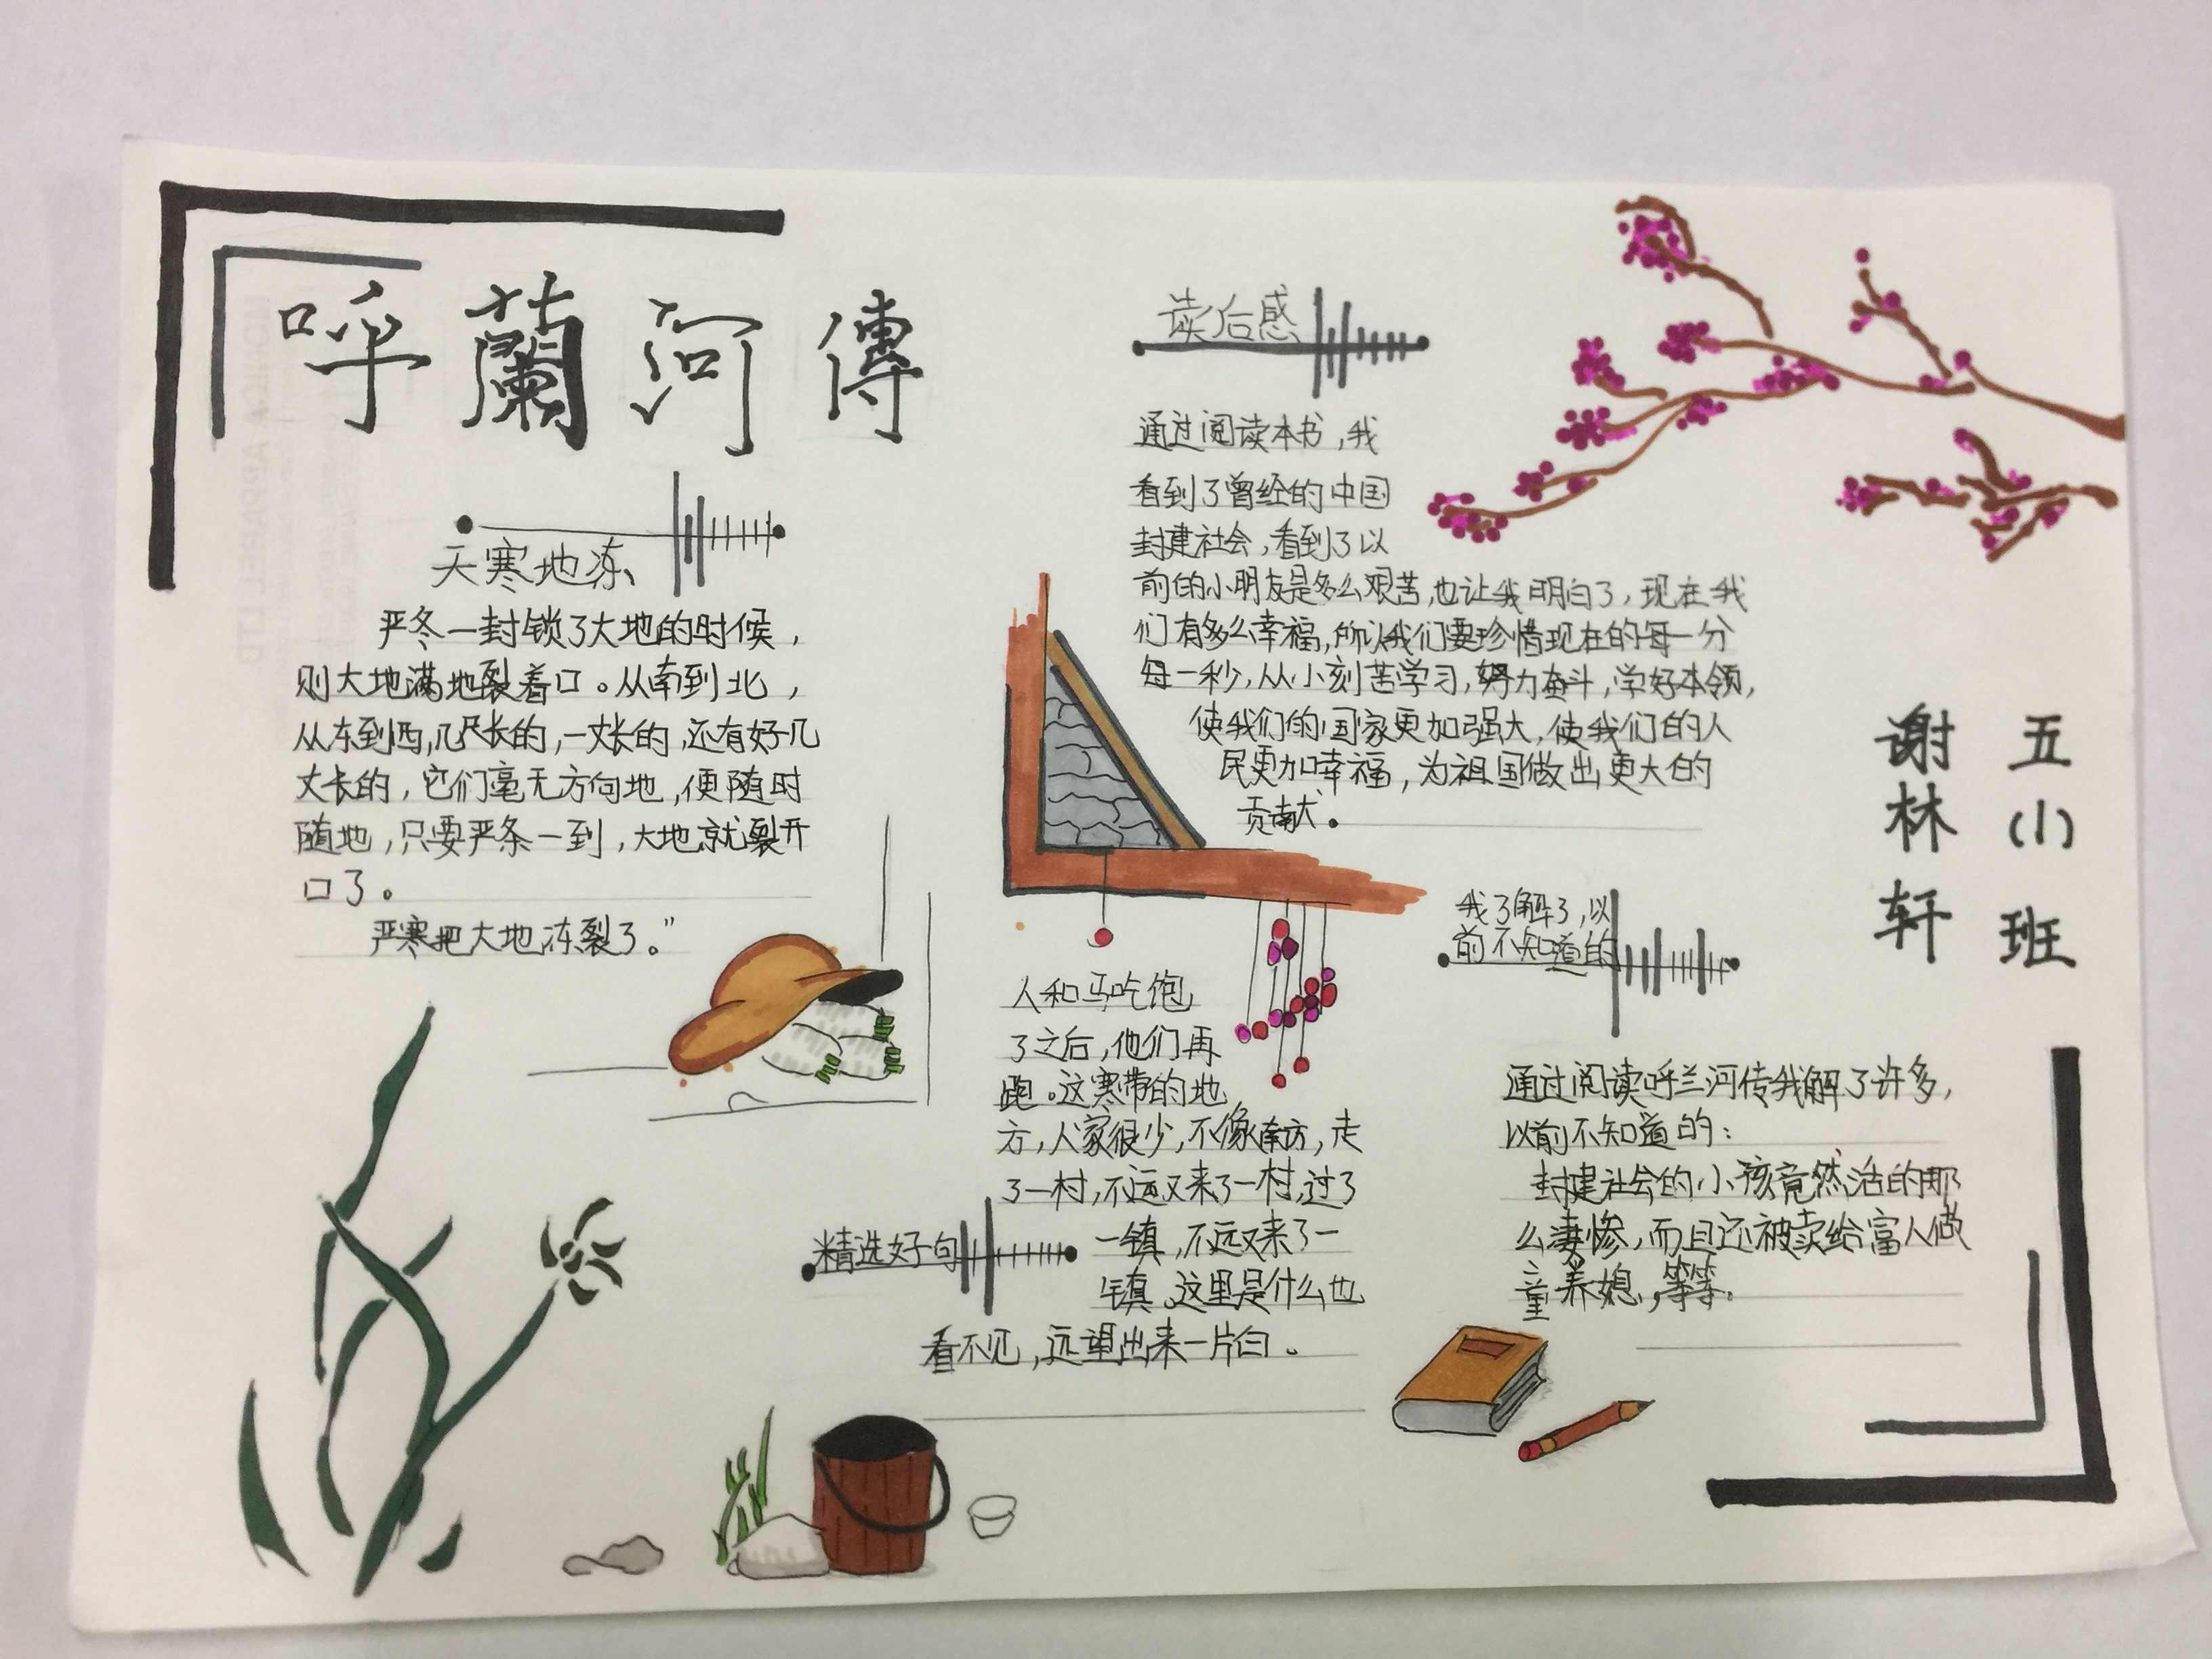 呼蘭河傳
天寒地冻
严冬一封锁了大地的时候，
则大地满地裂着口。从南到北，
从东到西，几尺长的，一丈长的，还有好几
丈长的，它们毫无方向地，便随时
随地，只要严冬一到，大地就裂开
口了。
严寒把大地冻裂了。”
读后感
通过阅读本书，我
看到了曾经的中国
封建社会，看到了以
前的小朋友是多么艰苦，也让我明白了，现在我
们有多么幸福，所以我们要珍惜现在的每一分
每一秒，从小刻苦学习，努力奋斗，学好本领，
使我们的国家更加强大，使我们的人
民更加幸福，为祖国做出更大的
贡献。
精选好句
人和马吃饱
了之后，他们再
跑。这寒带的地
方，人家很少，不像南方，走
了一村，不远又来了一村，过了
一镇，不远又来了一
镇。这里是什么也
看不见，远望出来一片白。
我了解了，以
前不知道的
通过阅读呼兰河传我解了许多，
以前不知道的：
封建社会的小孩竟然活的那
么凄惨，而且还被卖给富人做
童养媳，等等。
五(1)班
谢林轩